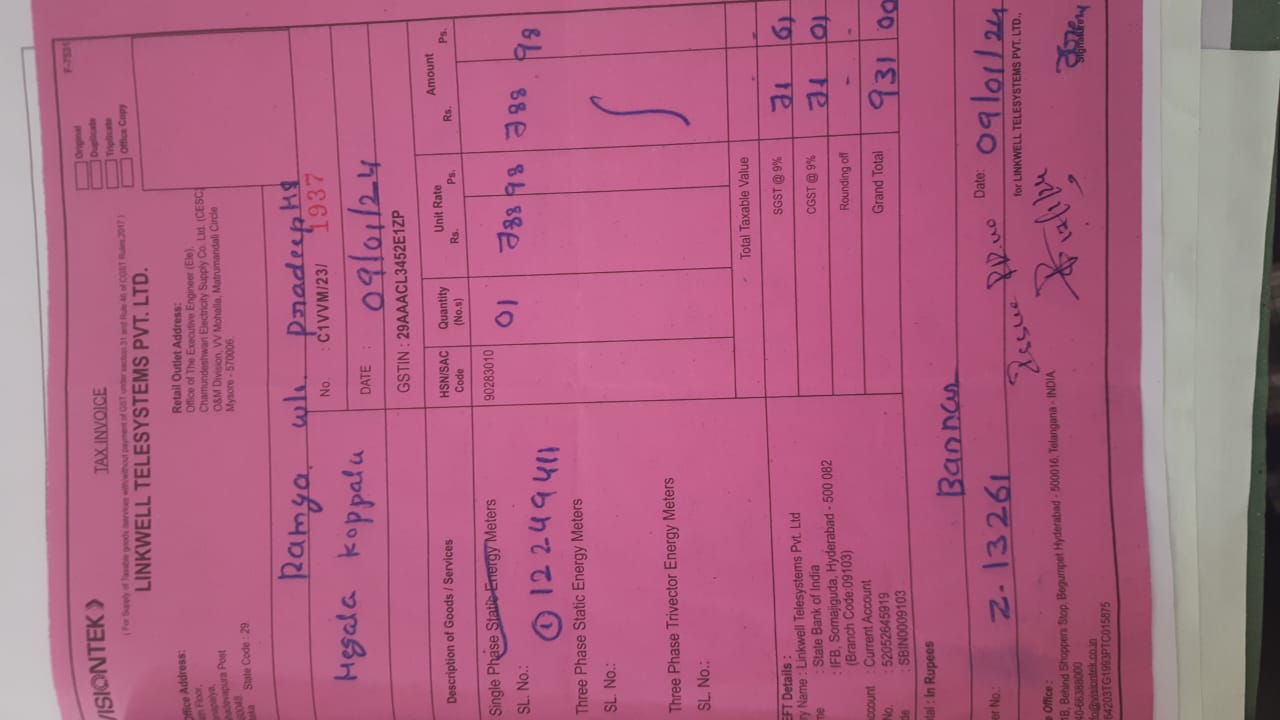 F-7531
TAX INVOICE
Original
Duplicate
Triplicate
Office Copy
VISIONTEK
( For Supply of Taxable goods /services with/without payment of GST under section 31 and Rule 46 of CGST Rules 2017 )
LINKWELL TELESYSTEMS PVT. LTD.
Retail Outlet Address:
Office of The Executive Engineer (Ele),
Chamundeshwari Electricity Supply Co. Ltd. (CESC)
O&M Division, VV Mohalla, Matrumandali Circle
Mysore - 570006.
ffice Address:
th Floor,
State Code : 29
Ramya w/o. Pradeep H S
Megala Koppalu
No. : C1VVM/23/ 1937
DATE : 09/01/24
GSTIN : 29AAACL3452E1ZP
Description of Goods / Services
HSN/SAC Code
Quantity (No.s)
Unit Rate Rs. Ps.
Amount Rs. Ps.
Single Phase Static Energy Meters 90283010 01 788 98 788 98
SL. No.: ① 12249411
Three Phase Static Energy Meters
SL. No.:
Three Phase Trivector Energy Meters
SL. No.:
Total Taxable Value
SGST @ 9% 71 01
CGST @ 9% 71 01
Rounding off - -
Grand Total 931 00
EFT Details :
ry Name : Linkwell Telesystems Pvt. Ltd
me : State Bank of India
: IFB, Somajiguda, Hyderabad - 500 082
(Branch Code:09103)
ccount : Current Account
No. : 52052645919
de : SBIN0009103
: In Rupees
er No.: Z-13261
Date: 09/01/24
for LINKWELL TELESYSTEMS PVT. LTD.,
Signatory
Office :
1B, Behind Shoppers Stop, Begumpet Hyderabad - 500016, Telangana - INDIA
40-66388000
fo@visiontek.co.in
64203TG1993PTC015875